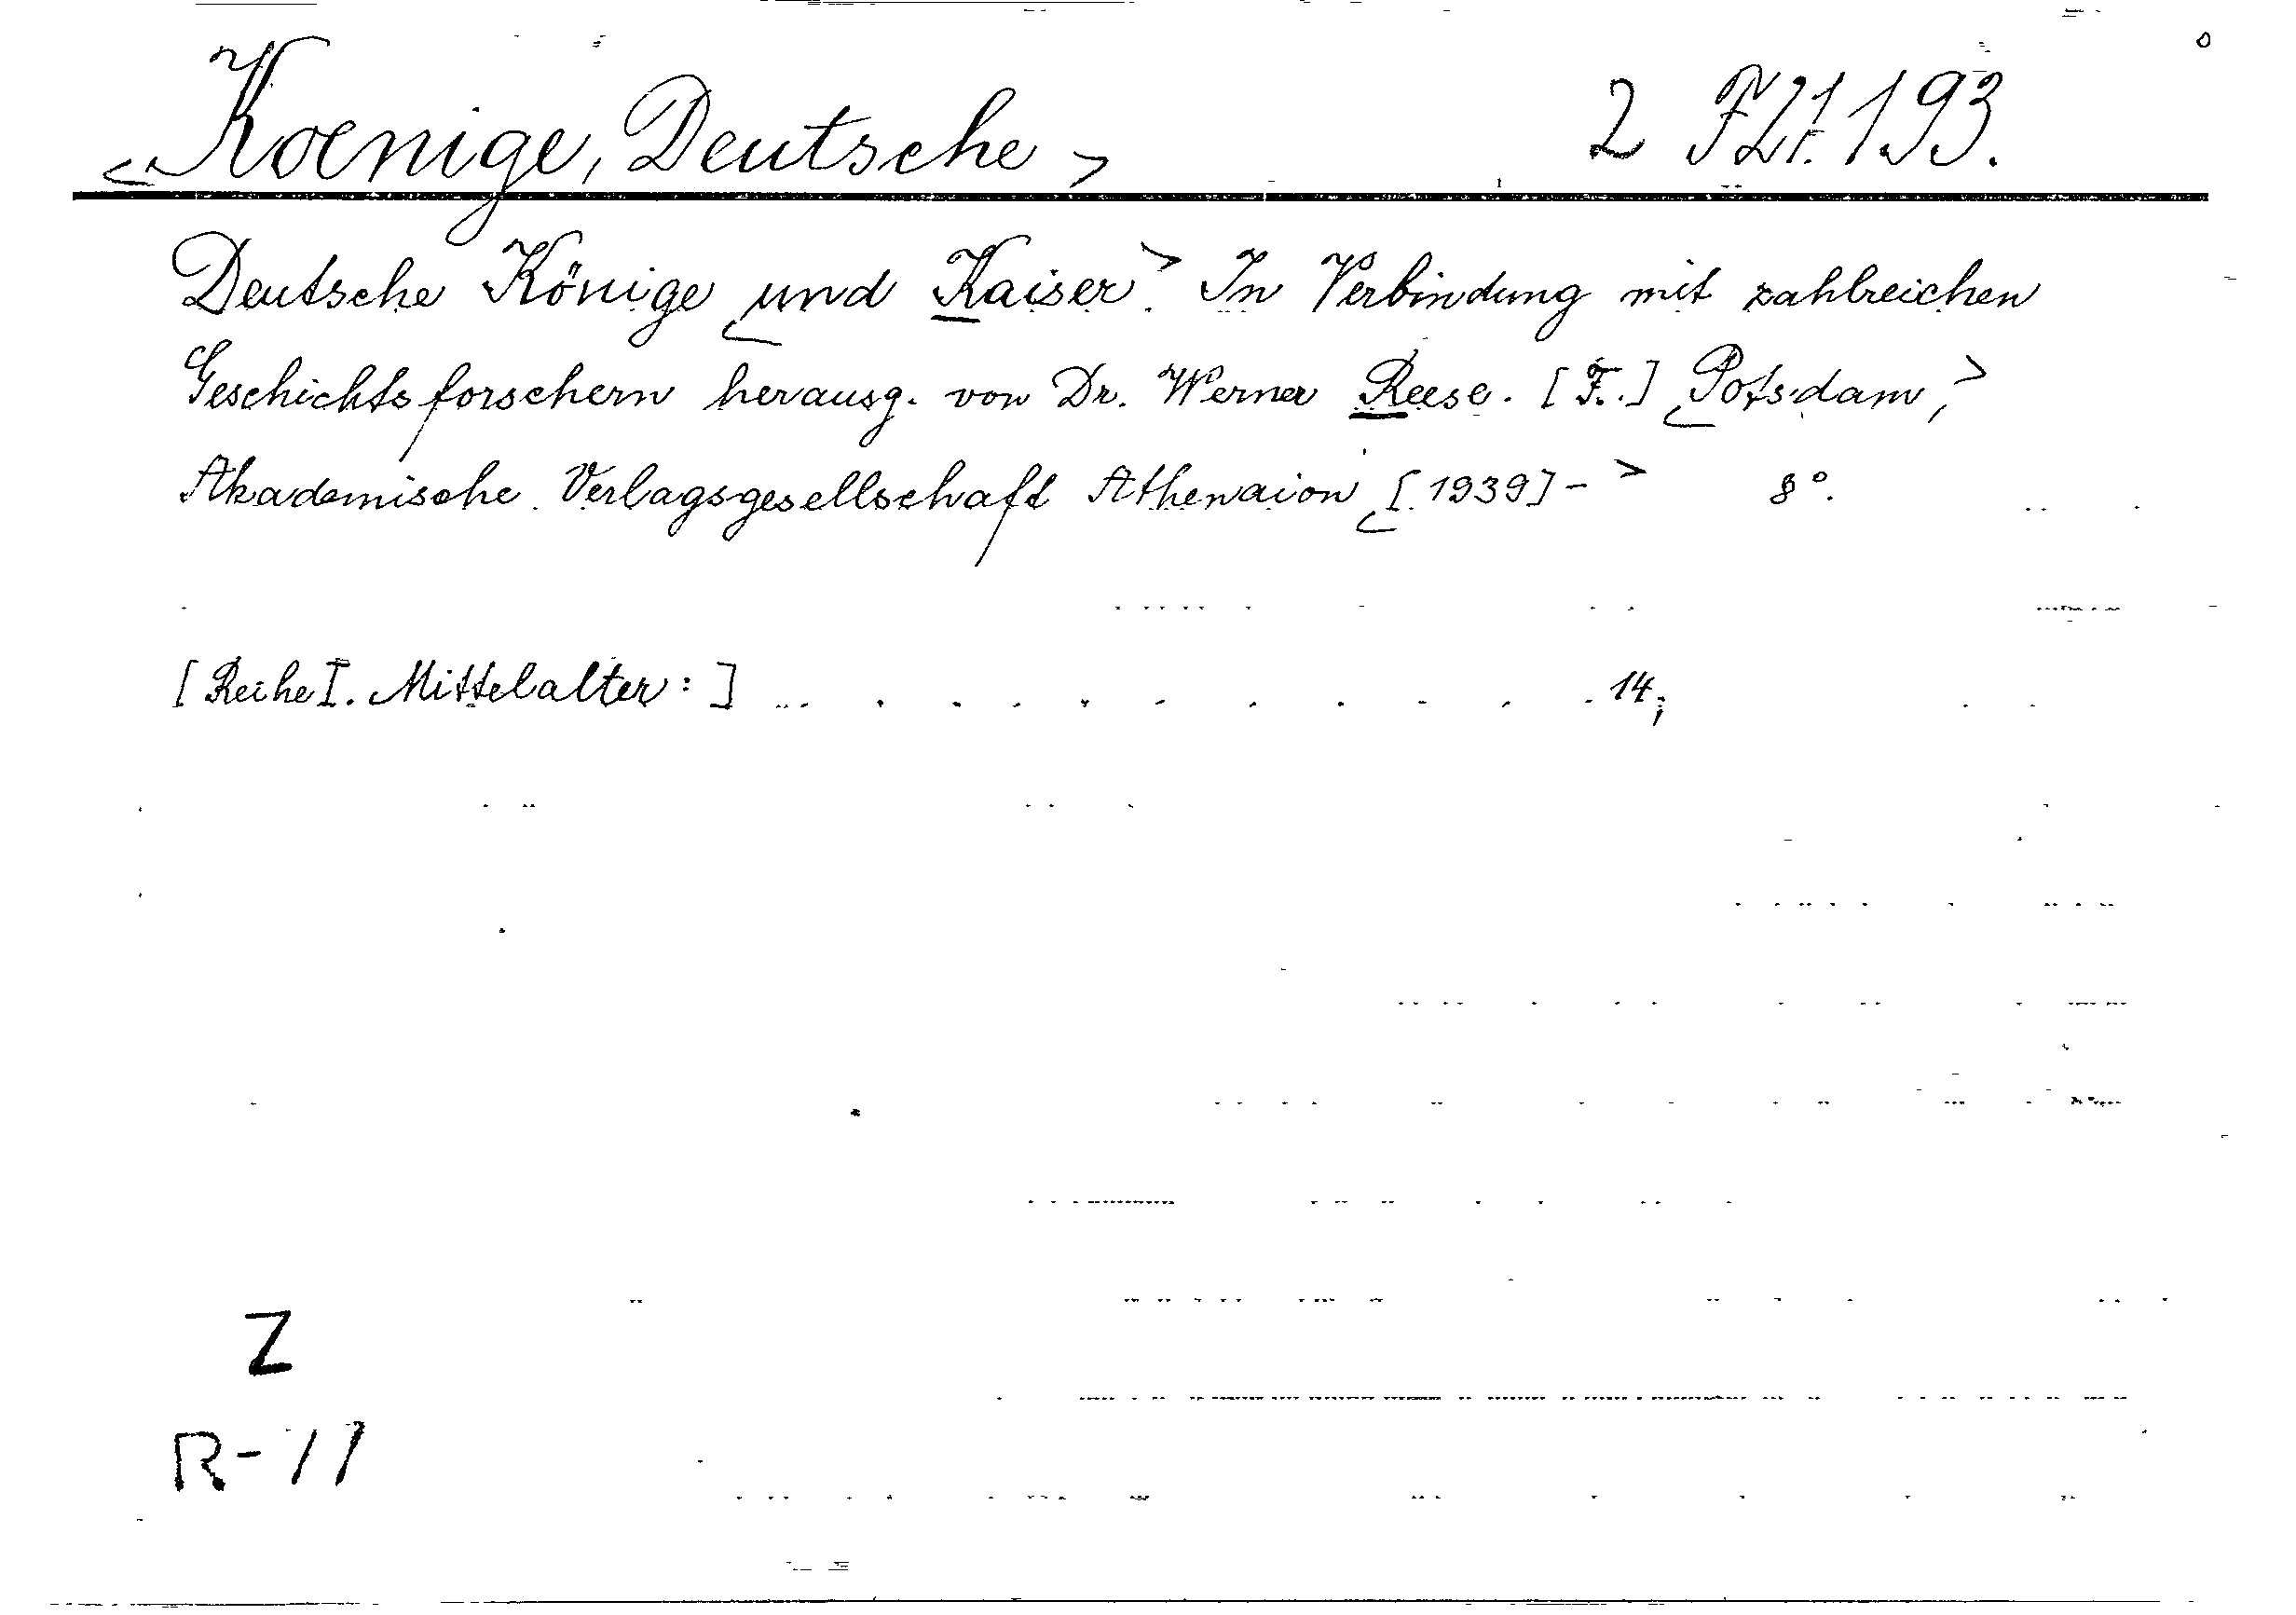 <Koenige, Deutsche> 2 FZt. 193.
Deutsche Könige <und Kaiser>. In Verbindung mit zahlreichen
Geschichtsforschern herausg. von Dr. Werner Reese. [F.] <Potsdam,>
Akademische Verlagsgesellschaft Athenaion <[1939]-> 8°.
[Reihe I. Mittelalter:] . . . . . . . . . . . . 14;
Z
R-11